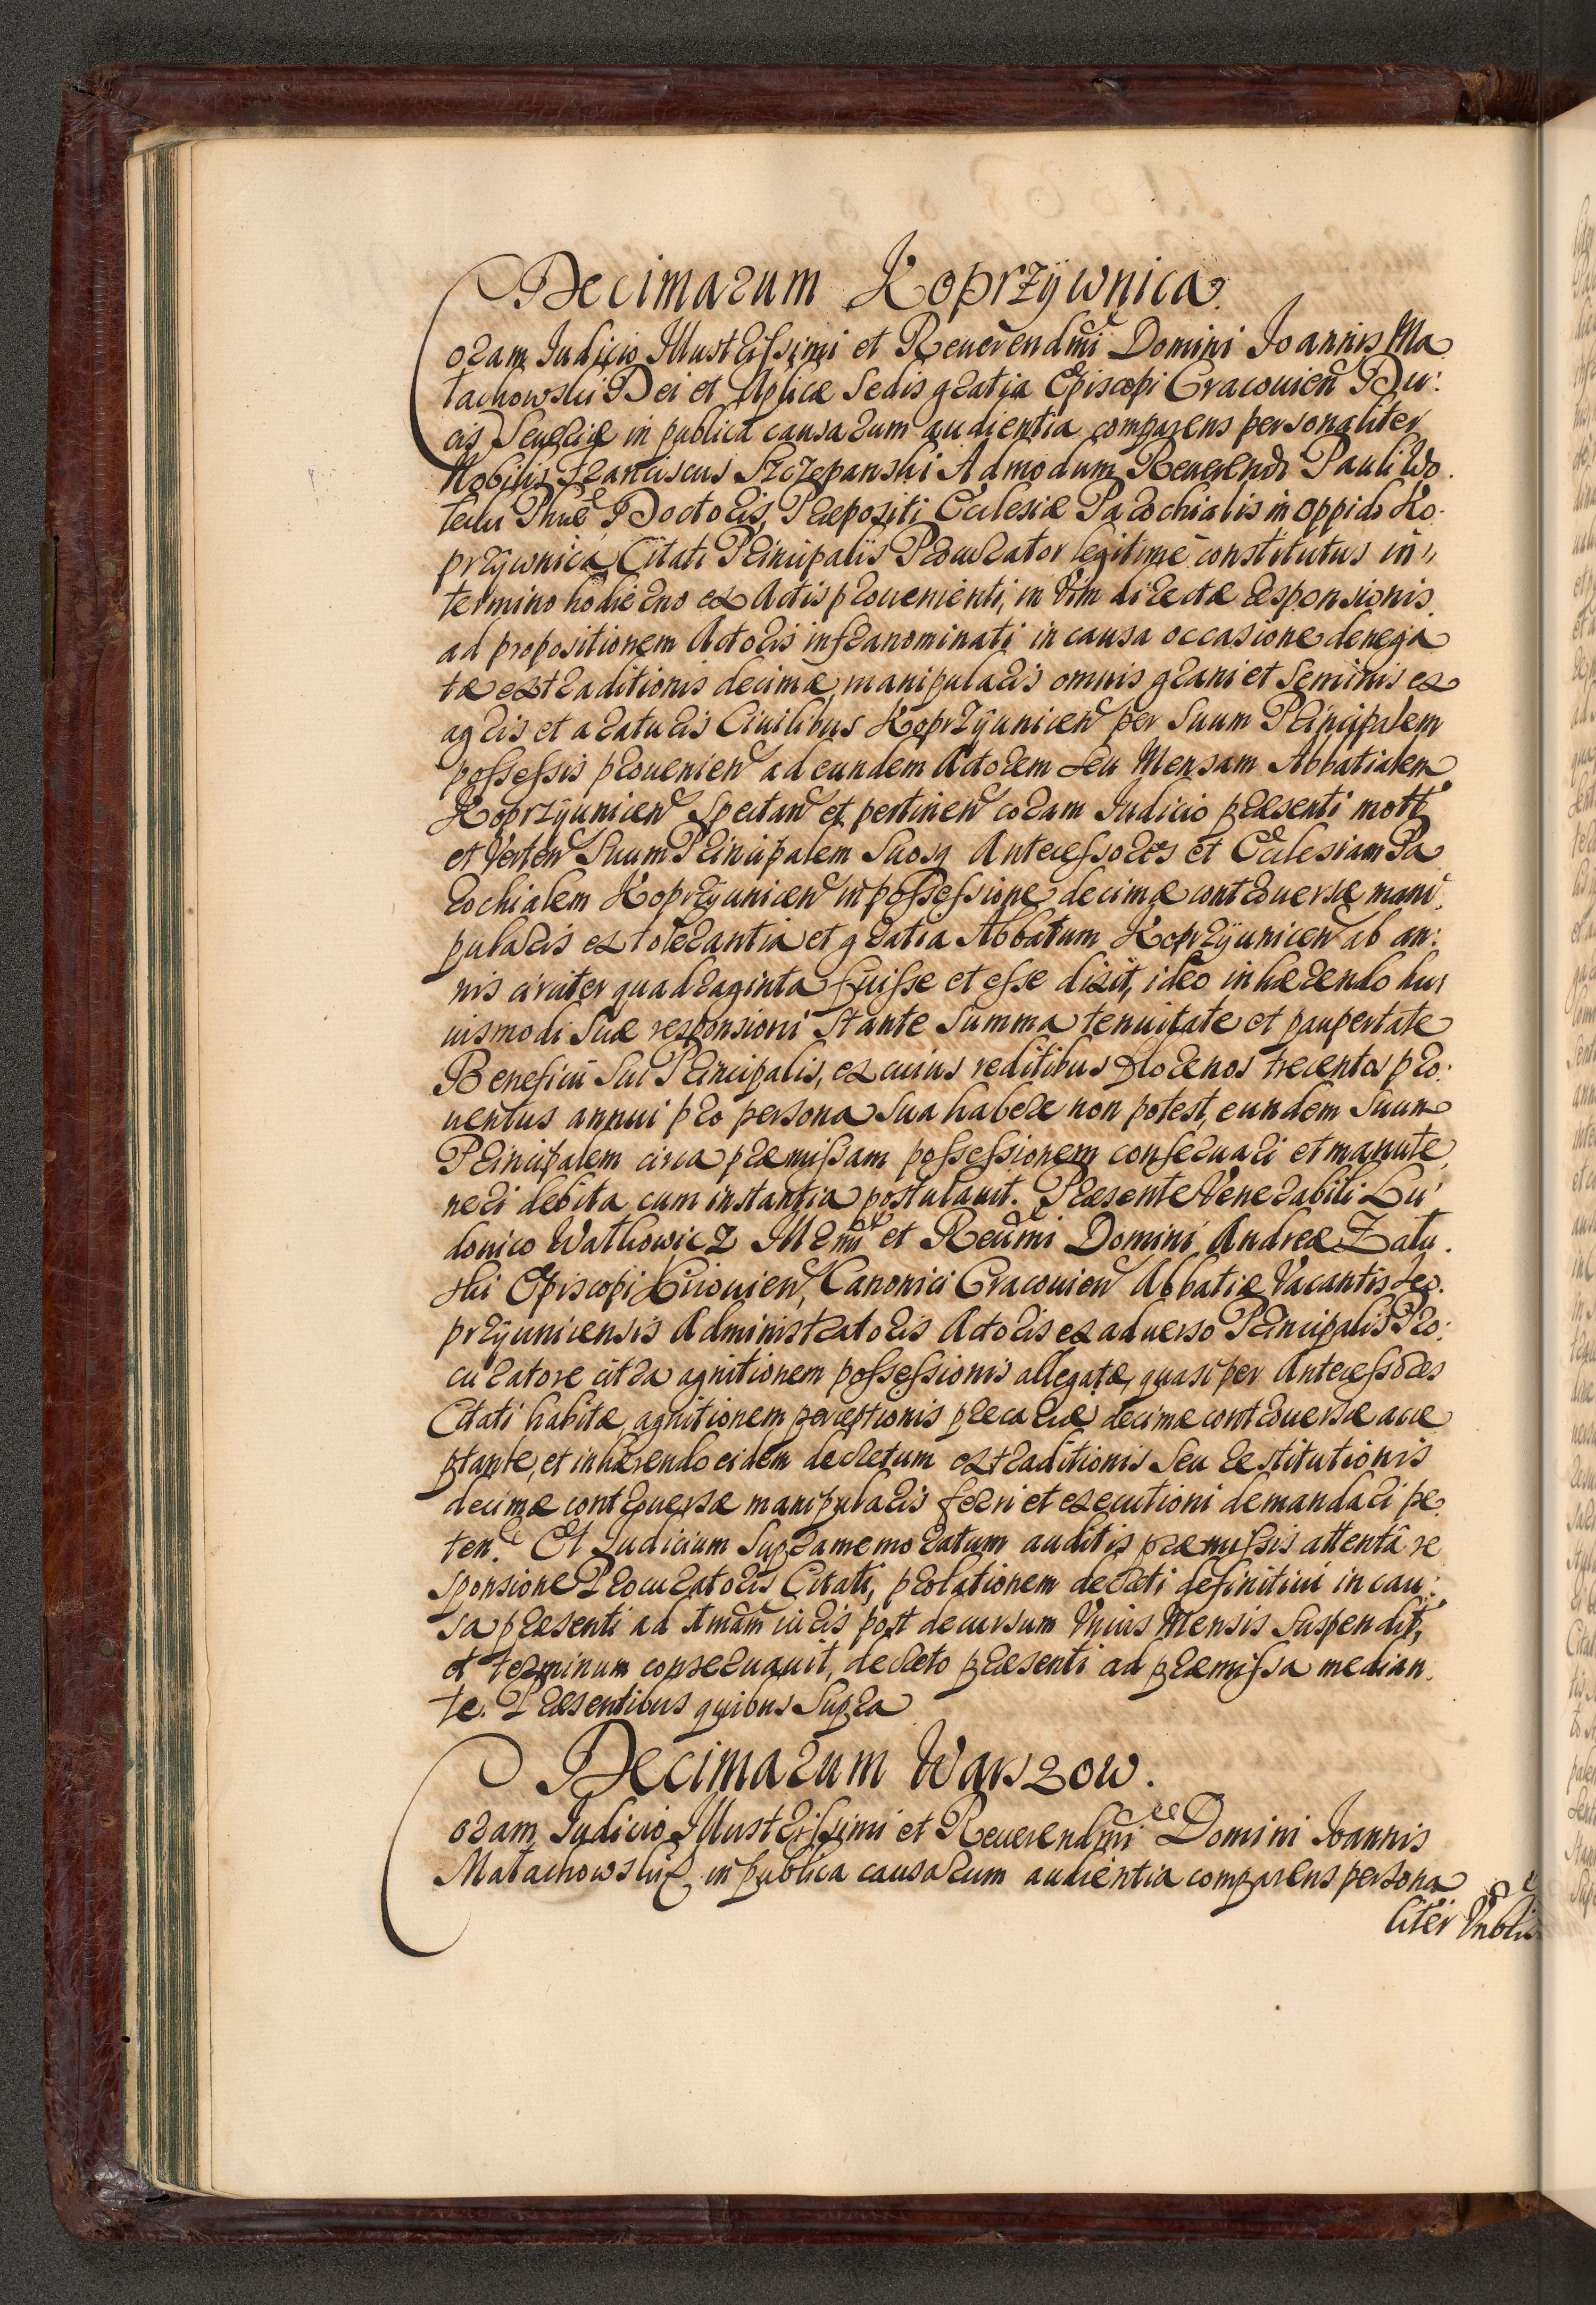 Decimarum Koprzÿwnica.
Coram Iudicio Illustrissimi et Reuerendmi Domini Ioannis Ma
łachowski Dei et Aplicæ Sedis gratia Episcopi Cracouien Du:
cis Seueriæ in publica causarum audientia comparens personaliter
Nobilis Franciscus Szczepanski Admodum Reuerendi Pauli Wo
lecki Phiæ Doctoris, Præpositi Ecclesiæ Parochialis in oppido Ko.
przÿwnica Citati Principalis Procurator legitime constitutus in
termino hodierno ex Actis proueniente, in Vim directæ responsionis
ad propositionem Actoris infranominati in causa occasione denega
tæ extraditionis decimæ manipularis omnis grani et seminis ex
agris et araturis Ciuilibus Koprzÿunicen per suum Principalem
possessis prouenien ad eundem Actorem seu Mensam Abbatialem
Koprzÿunicen Spectan et pertinen coram Iudicio præsenti mott
et Verten Suum Principalem Suosq Antecessores et Ecclesiam Pa
rochialem Koprzÿunicen in possessione decimæ controuersæ mani.
pularis ex tolerantia et gratia Abbatum Koprzÿunicen ab an:
nis circiter quadraginta fuisse et esse dixit, ideo inhærendo hu
iusmodi suæ responsioni Stante summa tenuitate et paupertate
Beneficii sui Principalis, ex cuius reditibus florenos trecentos pro:
uentus annui pro persona sua habere non potest, eundem Suum
Principalem circa præmissam possessionem conseruari et manute
neri debita cum instantia postulauit. Præsente Venerabili Lu
douico Watkowicz Illrmi et Reumi Domini Andreæ Zału.
ski Episcopi Kiiouien, Canonici Cracouien Abbatiæ Vacantis Ko.
przÿuniensis Administratoris Actoris ex aduerso Principalis Pro:
curatore citra agnitionem possessionis allegatæ, quasi per Antecessores
Citati habitæ agnitionem perceptionis precariæ decimæ controuersæ acce
ptante, et inhærendo eidem decretum extraditionis seu restitutionis
decimæ controuersæ manipularis ferri et executioni demandari pe
ten. Et Iudicium supramemoratum auditis præmissis attentâ re
sponsione Procuratoris Citati, prolationem decreti definitiui in cau:
sa præsenti ad Imam iuris post decursum Vnius Mensis suspendit,
et terminum conseruauit, decreto præsenti ad præmissa median.
te. Præsentibus quibus supra
Decimarum Warszow.
Coram Iudicio Illustrissimi et Reuerendmi Domini Ioannis
Małachowski in publica causarum audientia comparens persona
liter Vnblis